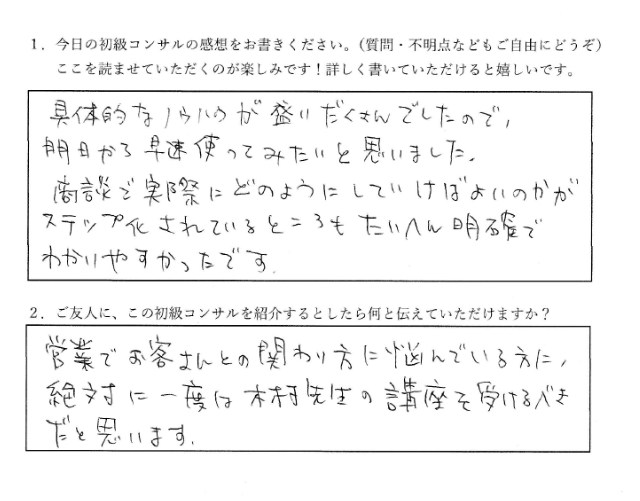 １．今日の初級コンサルの感想をお書きください。（質問・不明点などもご自由にどうぞ）
ここを読ませていただくのが楽しみです！詳しく書いていただけると嬉しいです。
具体的なノウハウが盛りだくさんでしたので、
明日から早速使ってみたいと思いました。
商談で実際にどのようにしていけばよいのかが
ステップ化されているところもたいへん明確で
わかりやすかったです。
２．ご友人に、この初級コンサルを紹介するとしたら何と伝えていただけますか？
営業でお客さんとの関わり方に悩んでいる方に、
絶対に一度は木村先生の講座を受けるべき
だと思います。